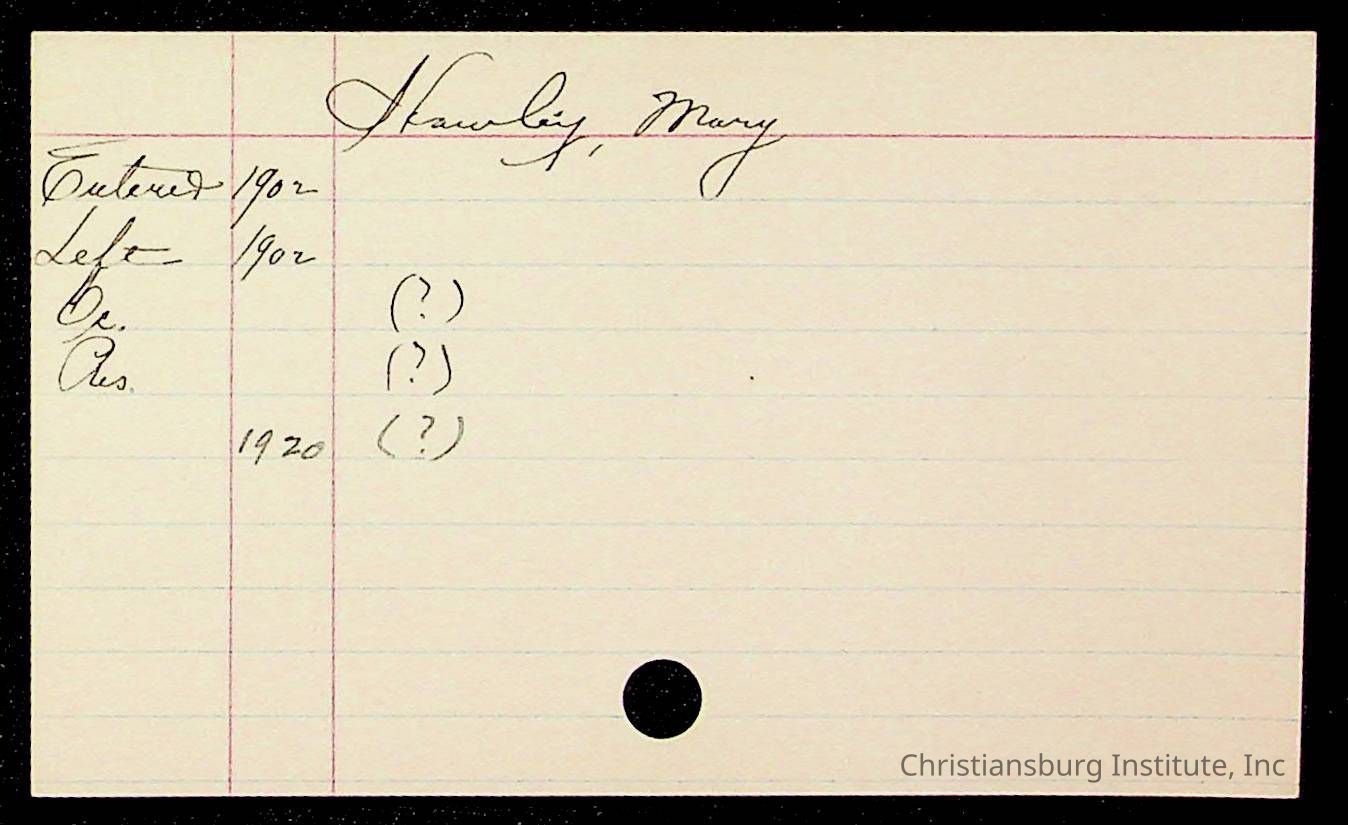 Hawley, Mary
Entered 1902
Left 1902
Oc. (?)
Res. (?)
1920 (?)
Christiansburg Institute, Inc